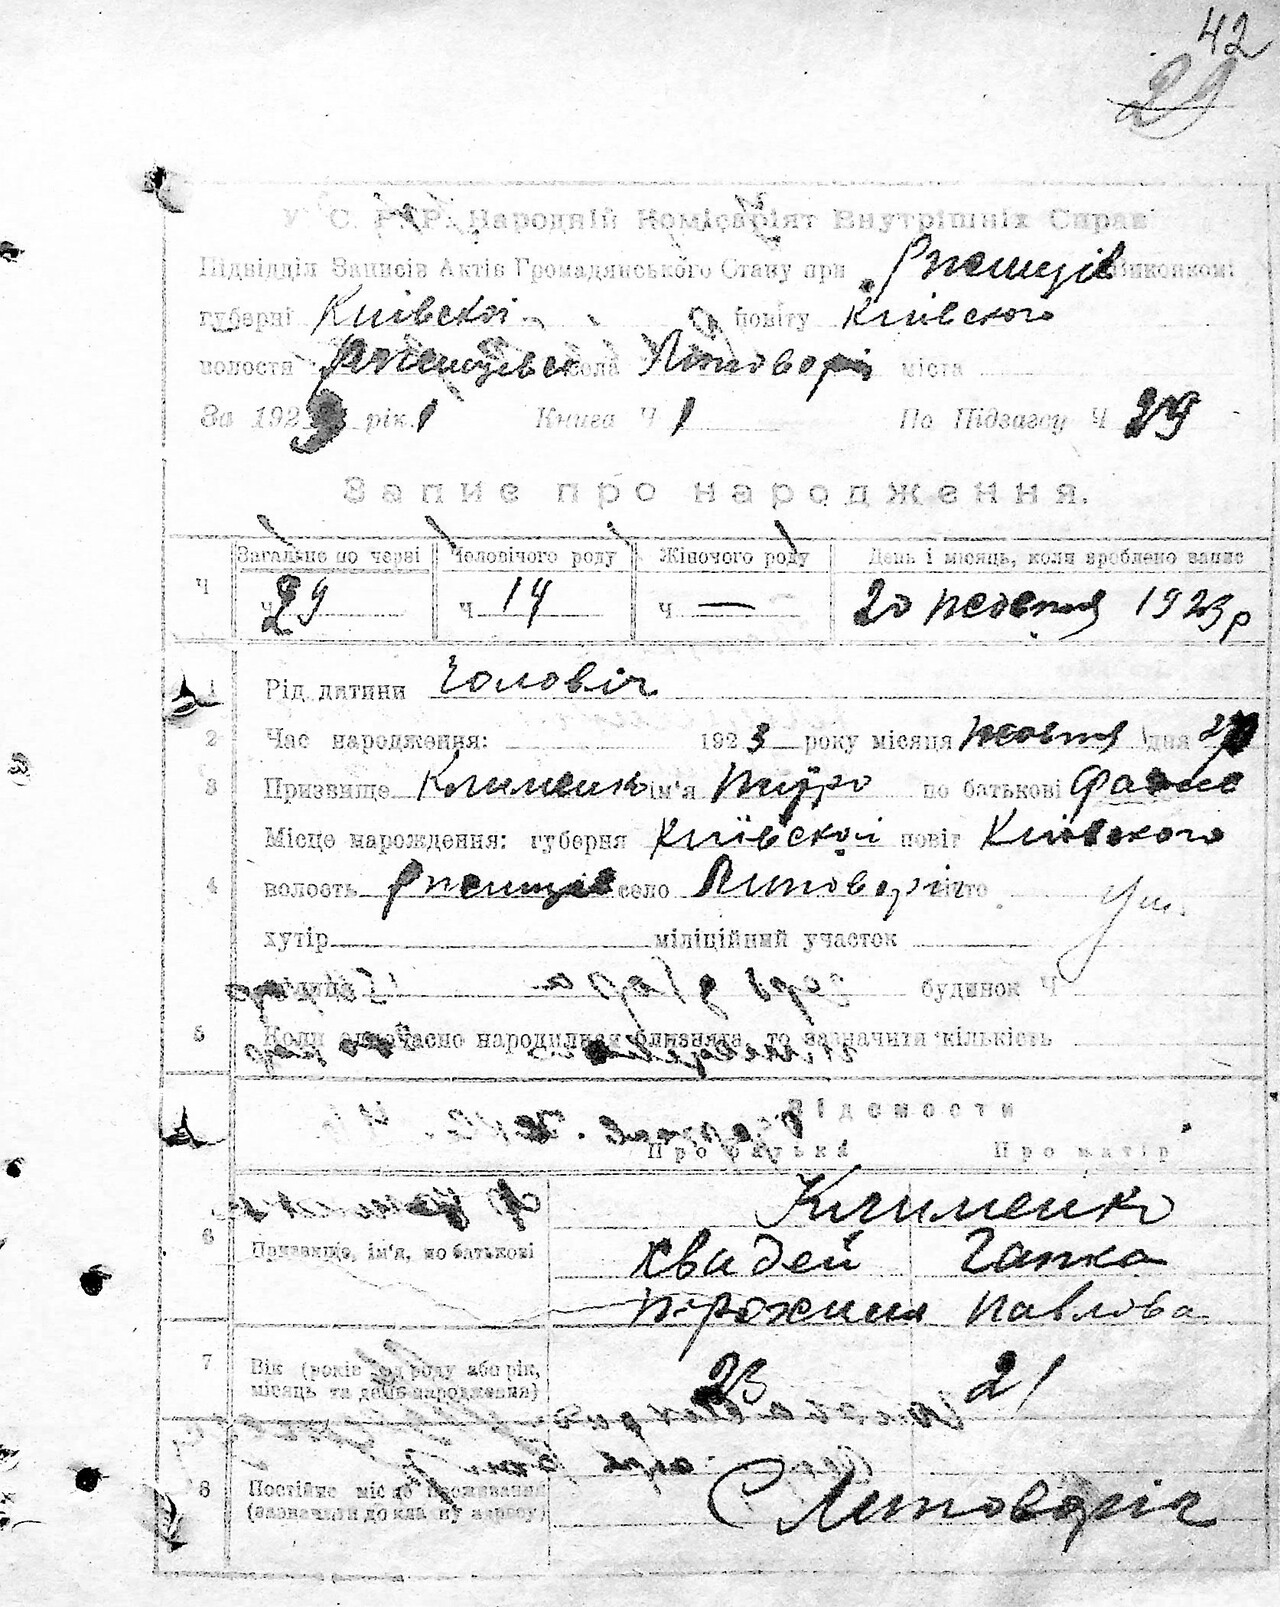 42
29
У. С. Р. Р. Народній Комісаріят Внутрішніх Справ
Підвідділ Записів Актів Громадянського Стану при Ржищів Виконкомі
губерні Київскої повіту Київского
волости Ржищівс села Липоворіг міста
За 1923 рік 1 Книга Ч 1 По Підзагсу Ч 29
Запис про народження.
Загально по черзі Чоловічого роду Жіночого роду День і місяць, коли зроблено запис
Ч ч 29 ч 14 ч — 20 жовтня 1923 р
1 Рід дитини Чоловіч
2 Час народження: 1923 року місяця жовтня дня
3 Призвище Клименко ім'я по батькові
Місце народження: губерня Київскої повіт Київского
4 волость Ржищів село Липоворіг місто
хутір міліційний участок
будинок Ч
5 Коли одночасно народилися близнята, то зазначити кількість
Відомости
Про батька Про матір
Клименко
6 Призвище, ім'я, по батькові Хвадей Гапка
Павлова
7 Вік (років від роду або рік, 23 21
місяць та день народження)
8 Постійне місце проживання С Липоворіг
(зазначити докладну адресу)